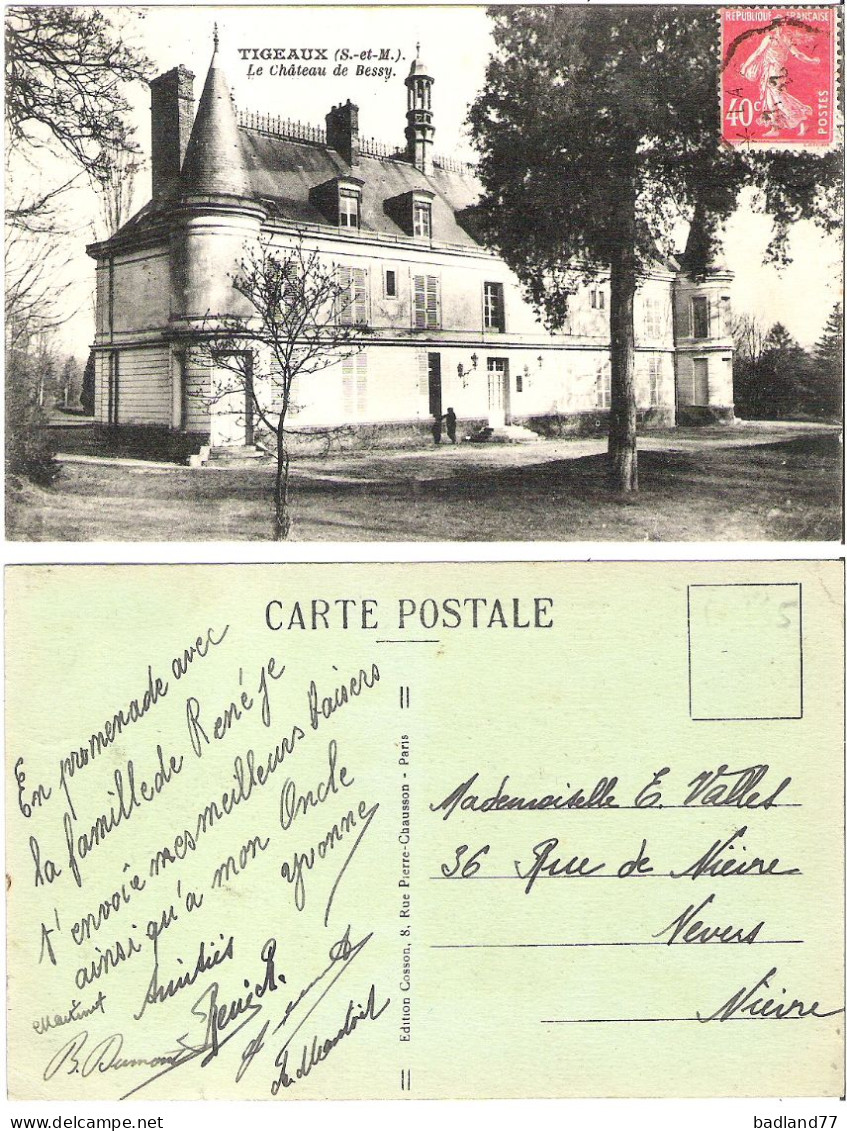 TIGEAUX (S.-et-M.).
Le Château de Bessy.
RÉPUBLIQUE FRANÇAISE
40c
POSTES
CARTE POSTALE
En promenade avec
la famille de René je
t'envoie mes meilleurs baisers
ainsi qu'à mon Oncle
Yvonne
Amitiés
B. Dumont
Edition Cosson, 8, Rue Pierre-Chausson - Paris
Mademoiselle E. Valles
36 Rue de Nièvre
Nevers
Nièvre
badland77
delcampe.net